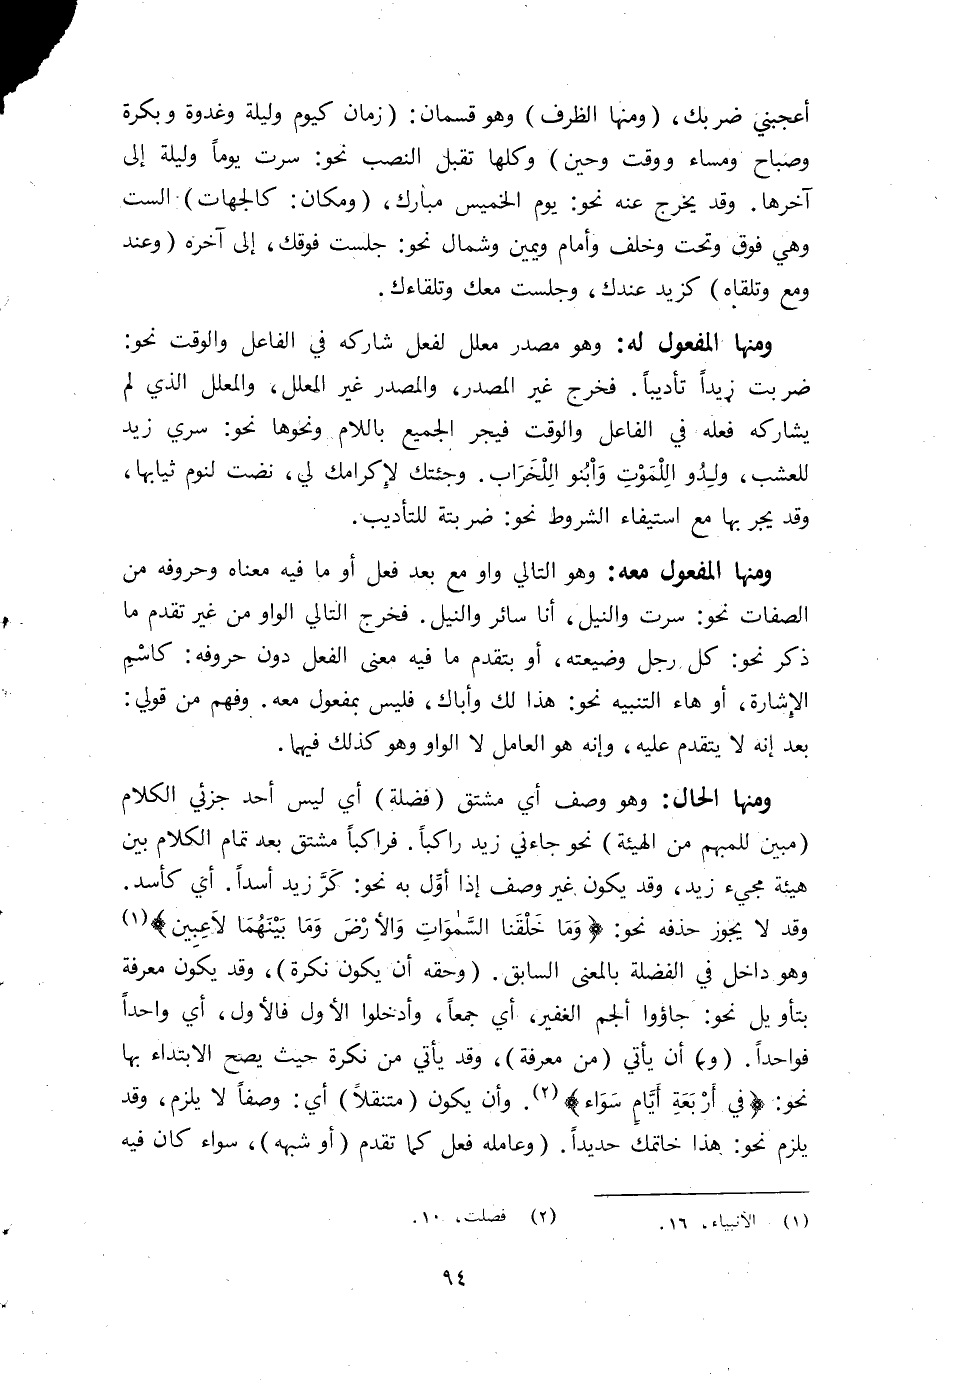 أعجبني ضربك، (ومنها الظرف) وهو قسمان: (زمان كيوم وليلة وغدوة وبكرة
وصباح ومساء ووقت وحين) وكلها تقبل النصب نحو: سرت يوماً وليلة إلى
آخرها. وقد يخرج عنه نحو: يوم الخميس مبارك، (ومكان: كالجهات) الست
وهي فوق وتحت وخلف وأمام ويمين وشمال نحو: جلست فوقك، إلى آخره (وعند
ومع وتلقاه) كزيد عندك، وجلست معك وتلقاءك.
ومنها المفعول له: وهو مصدر معلل لفعل شاركه في الفاعل والوقت نحو:
ضربت زيداً تأديباً. فخرج غير المصدر، والمصدر غير المعلل، والمعلل الذي لم
يشاركه فعله في الفاعل والوقت فيجر الجميع باللام ونحوها نحو: سري زيد
للعشب، ولِدُو اللْمَوْتِ وَاْبْنو اللْخَرَاب. وجئتك لإكرامك لي، نضت لنوم ثيابها،
وقد يجر بها مع استيفاء الشروط نحو: ضربتة للتأديب.
ومنها المفعول معه: وهو التالي واو مع بعد فعل أو ما فيه معناه وحروفه من
الصفات نحو: سرت والنيل، أنا سائر والنيل. فخرج التالي الواو من غير تقدم ما
ذكر نحو: كل رجل وضيعته، أو بتقدم ما فيه معنى الفعل دون حروفه: كاسْمِ
الإشارة، أو هاء التنبيه نحو: هذا لك وأباك، فليس بمفعول معه. وفهم من قولي:
بعد إنه لا يتقدم عليه، وإنه هو العامل لا الواو وهو كذلك فيها.
ومنها الحال: وهو وصف أي مشتق (فضلة) أي ليس أحد جزئي الكلام
(مبين للمبهم من الهيئة) نحو جاءني زيد راكباً. فراكباً مشتق بعد تمام الكلام بين
هيئة مجيء زيد، وقد يكون غير وصف إذا أوِّل به نحو: كَرَّ زيد أسداً. أي كأسد.
وقد لا يجوز حذفه نحو: ﴿وَمَا خَلَقْنا السَّمٰوَاتِ وَالأَرْضَ وَمَا بَيْنَهُمَا لاَعِبِين﴾(١)
وهو داخل في الفضلة بالمعنى السابق. (وحقه أن يكون نكرة)، وقد يكون معرفة
بتأويل نحو: جاؤوا الجم الغفير، أي جمعاً، وأدخلوا الأول فالأول، أي واحداً
فواحداً. (و) أن يأتي (من معرفة)، وقد يأتي من نكرة حيث يصح الابتداء بها
نحو: ﴿في أَرْبَعَةِ أَيَّامٍ سَوَاء﴾(٢). وأن يكون (متنقلاً) أي: وصفاً لا يلزم، وقد
يلزم نحو: هذا خاتمك حديداً. (وعامله فعل كما تقدم (أو شبهه)، سواء كان فيه
(١) الأنبياء، ١٦. (٢) فصلت، ١٠.
٩٤